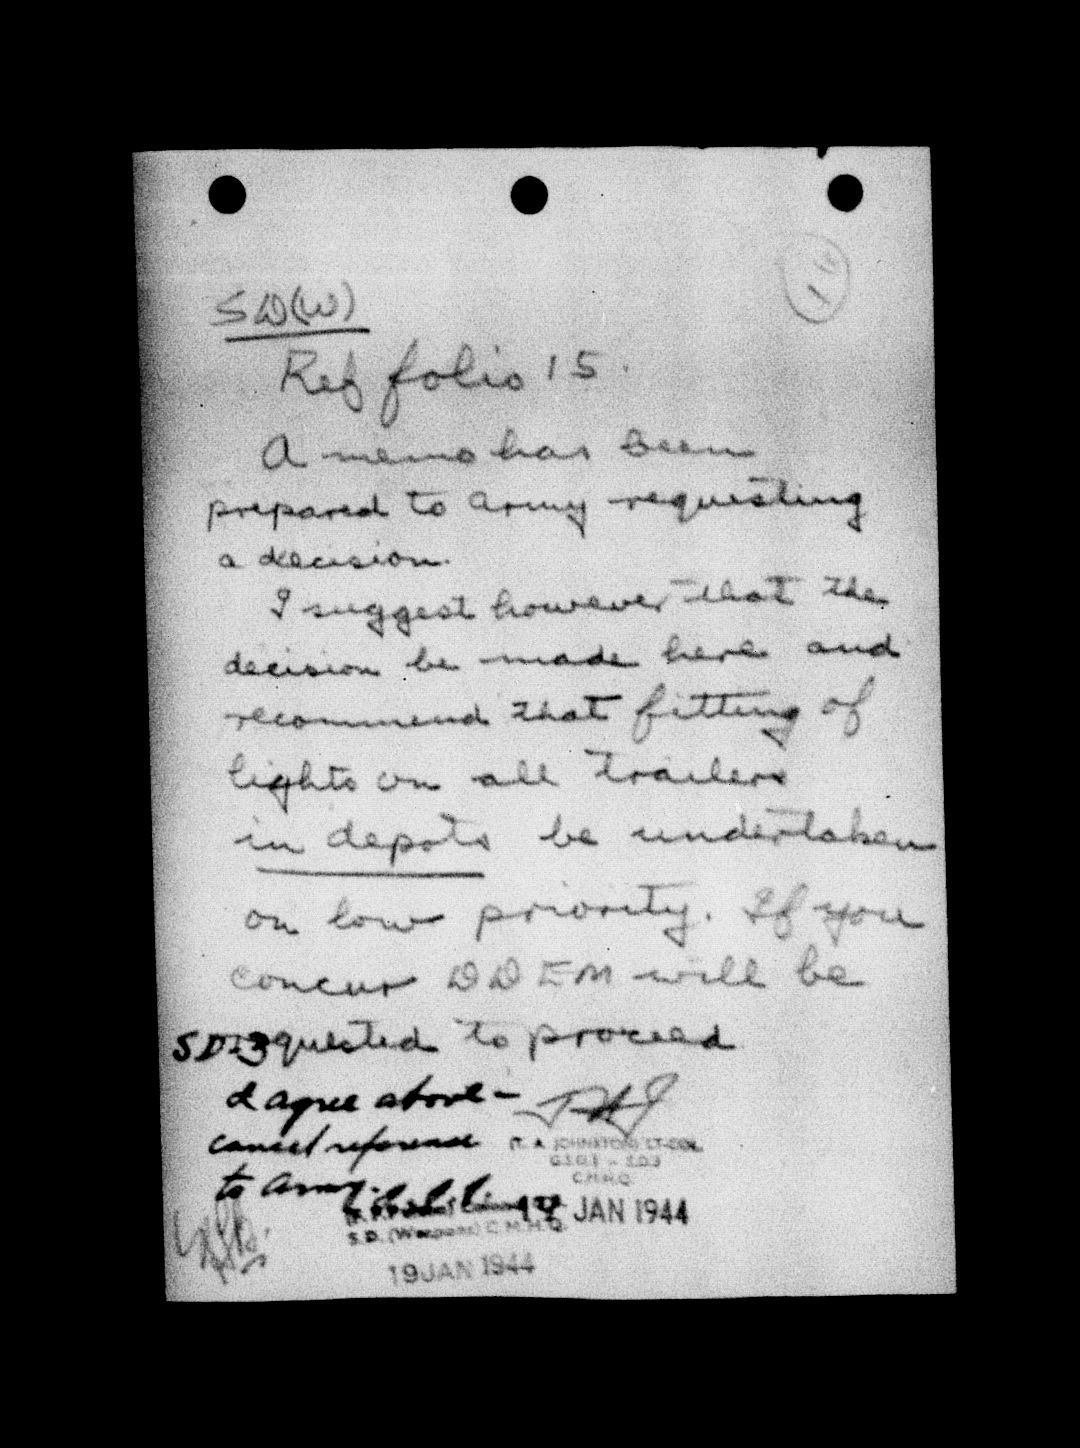 16
SD(W)
Ref folio 15.
A memo has been
prepared to Army requesting
a decision.
I suggest however that the
decision be made here and
recommend that fitting of
lights on all trailers
in depots be undertaken
on low priority. If you
concur DDEM will be
requested to proceed
SD3
I agree above -
cancel reference
to Army.
(T. A. JOHNSTON) LT-COL.
G.S.O.1 - S.D.3
C.M.H.Q.
JAN 1944
S.D. (Weapons) C.M.H.Q.
19 JAN 1944